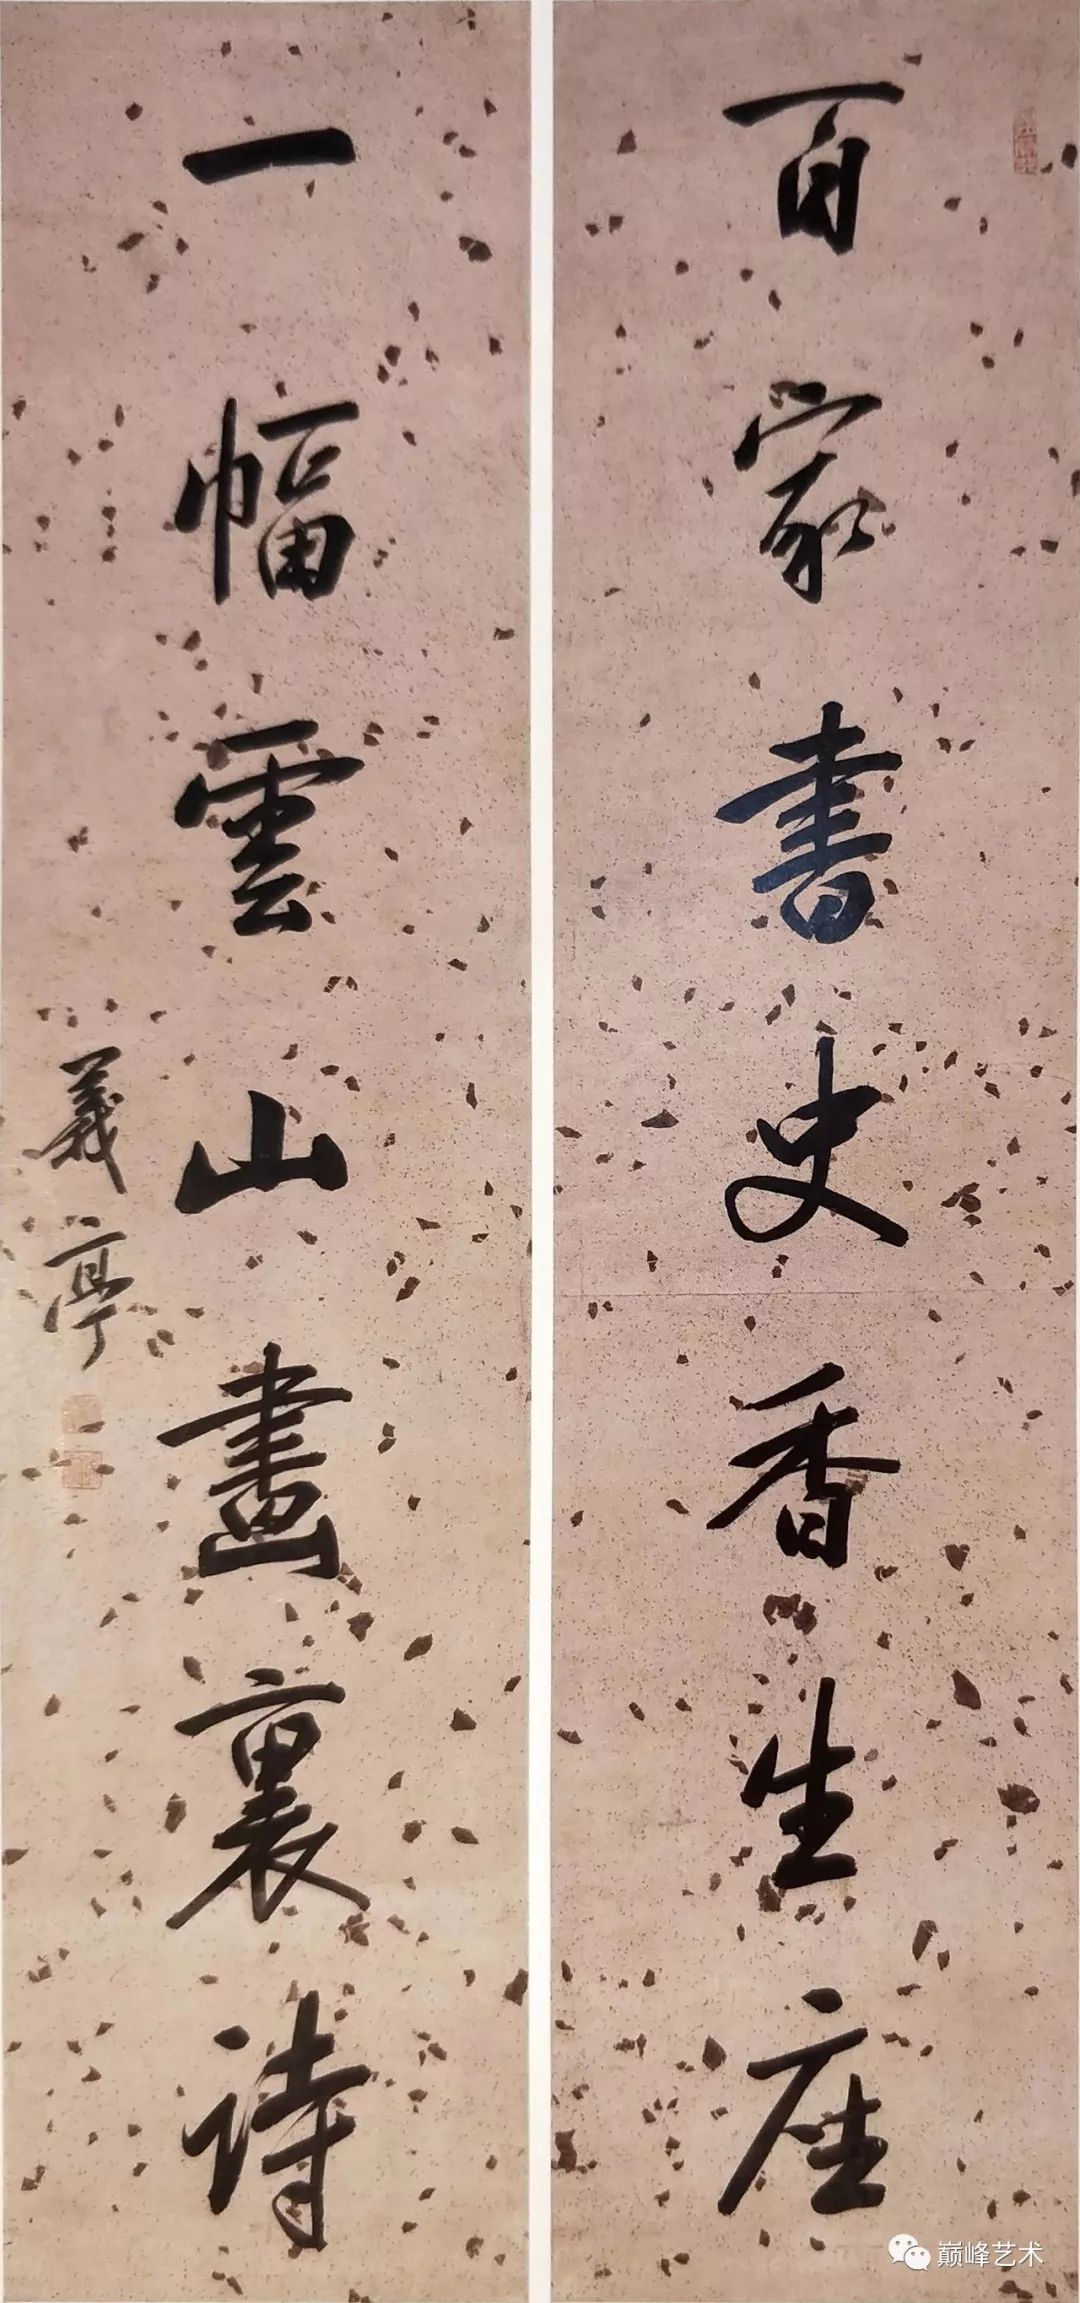 百家書史香生座
一幅雲山畫裏詩
義亭
巅峰艺术